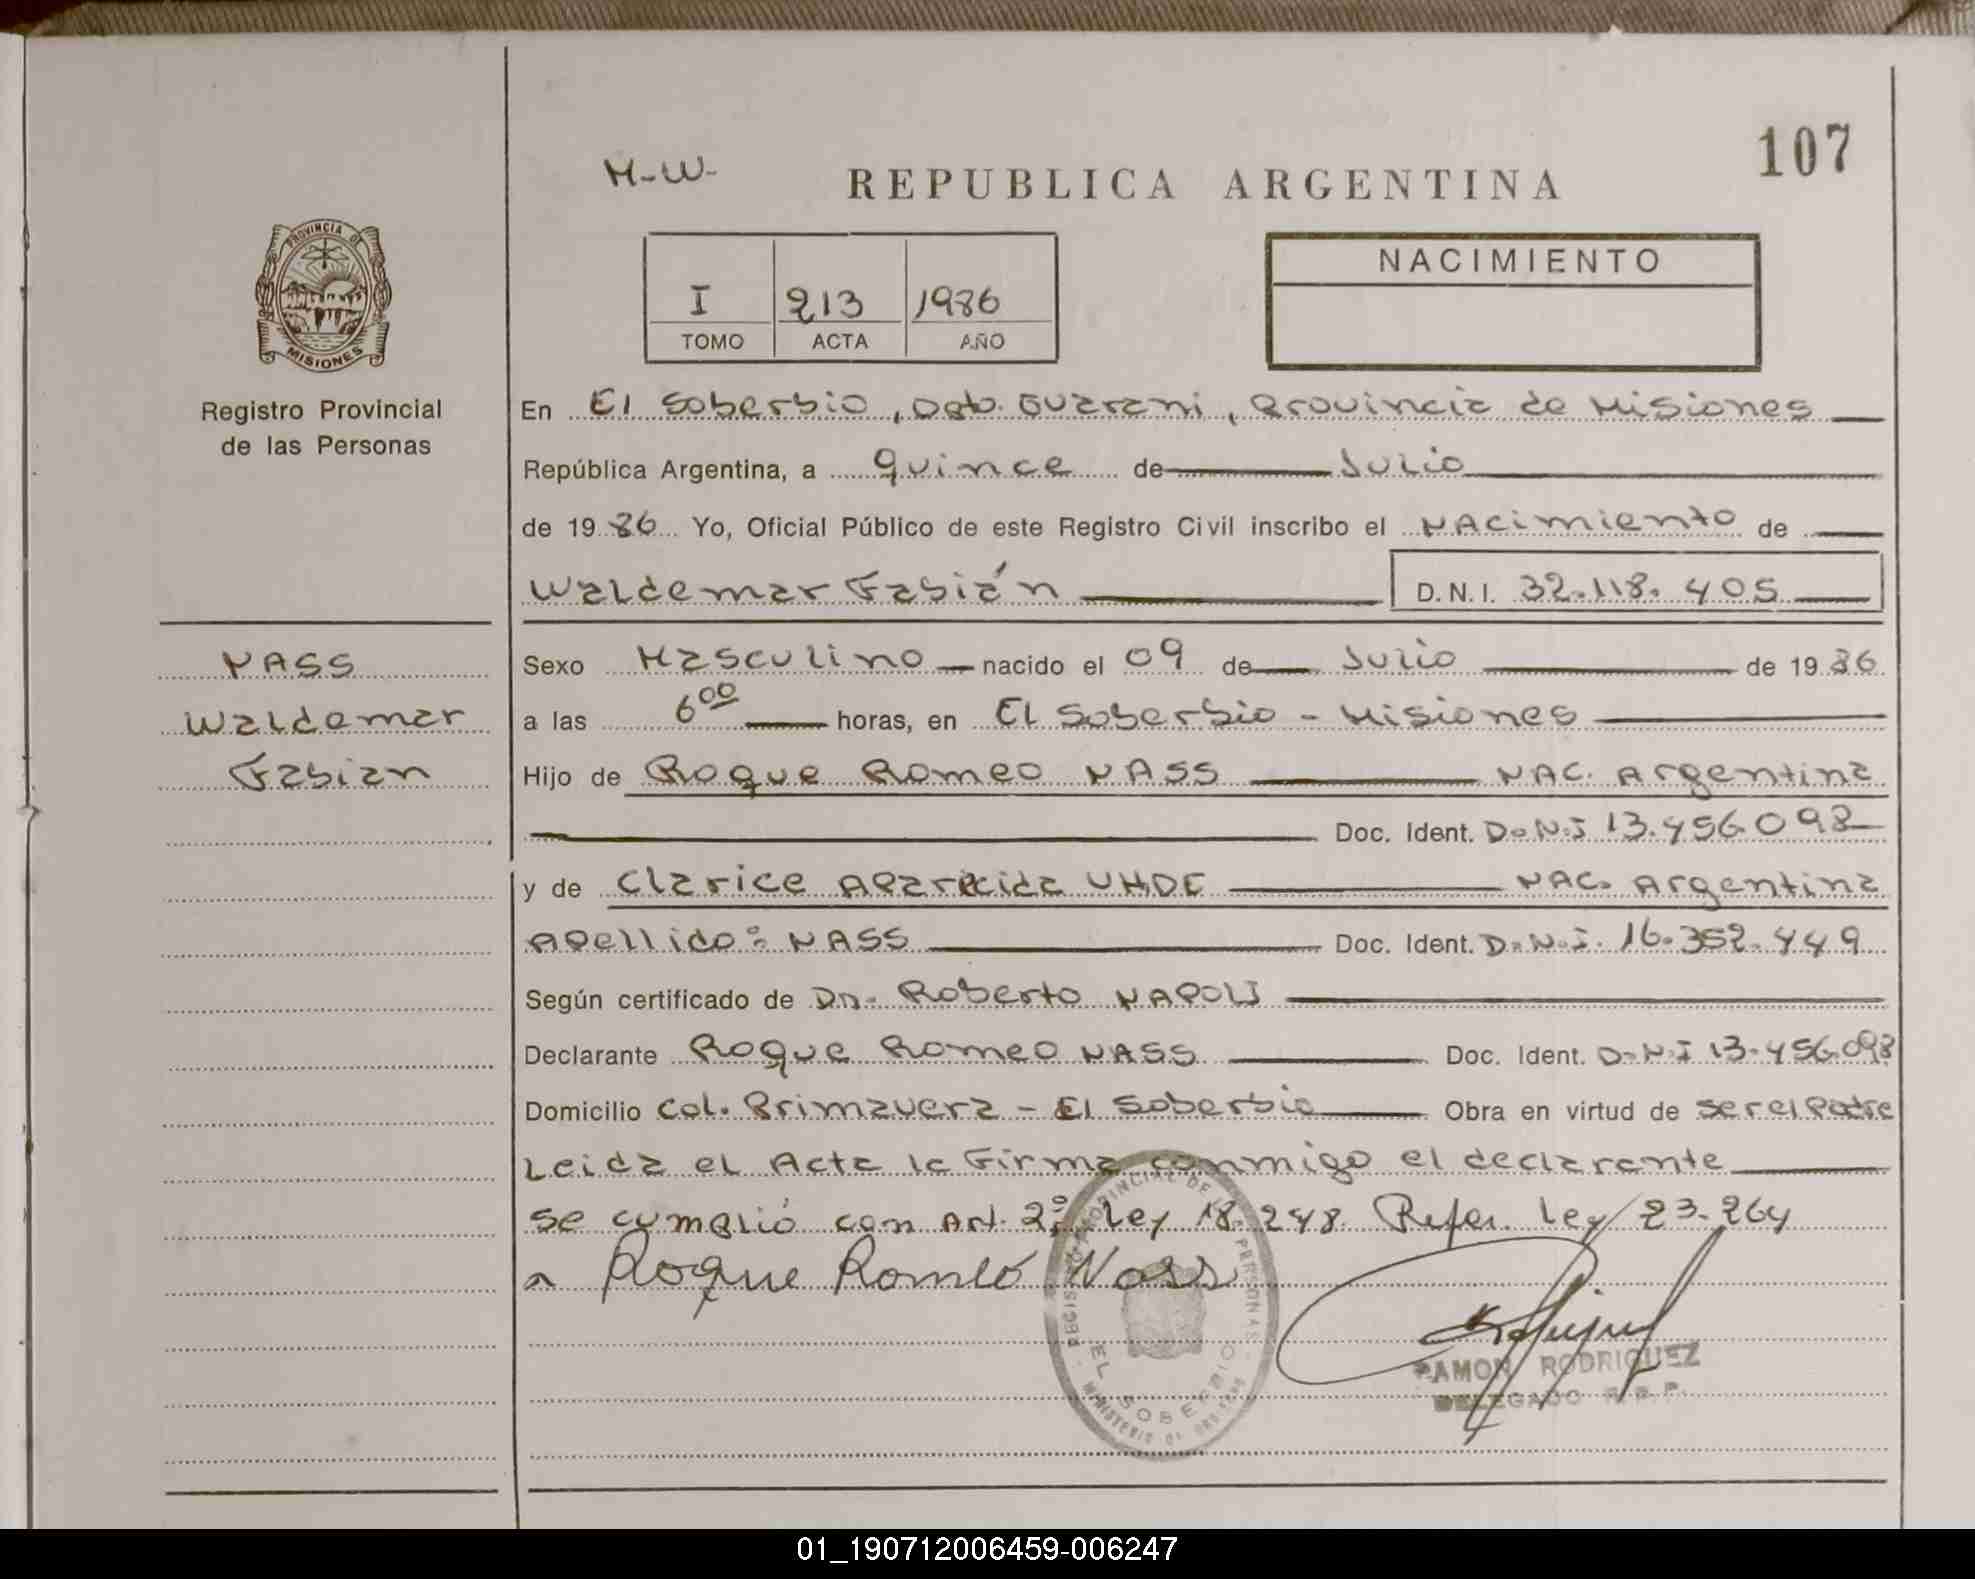 107
M-W-
REPUBLICA ARGENTINA
PROVINCIA DE
MISIONES
Registro Provincial
de las Personas
I 213 1986
TOMO ACTA AÑO
NACIMIENTO
En El Soberbio, Dpto. Guarani, Provincia de Misiones
República Argentina, a quince de Julio
de 1986 Yo, Oficial Público de este Registro Civil inscribo el NAcimiento de
Waldemar Fabián D.N.I. 32.118.405
NASS
Waldemar
Fabian
Sexo Masculino nacido el 09 de Julio de 1986
a las 6⁰⁰ horas, en El Soberbio - Misiones
Hijo de Roque Romeo NASS NAC. Argentina
Doc. Ident. D.N.I 13.456.098
y de Clarice Aparecida UHDE NAC. Argentina
Apellido: NASS Doc. Ident. D.N.I. 16.352.449
Según certificado de Dn. Roberto NAPOLI
Declarante Roque Romeo NASS Doc. Ident. D.N.I 13.456.098
Domicilio Col. Primavera - El Soberbio Obra en virtud de ser el Padre
Leida el Acta la Firma conmigo el declarante
se cumplió con Art. 2º Ley 18.248. Refer. Ley 23.264
Roque Romeo Nass
REGISTRO PROVINCIAL DE LAS PERSONAS
EL SOBERBIO
RAMON RODRIGUEZ
DELEGADO R.P.P.
01_190712006459-006247